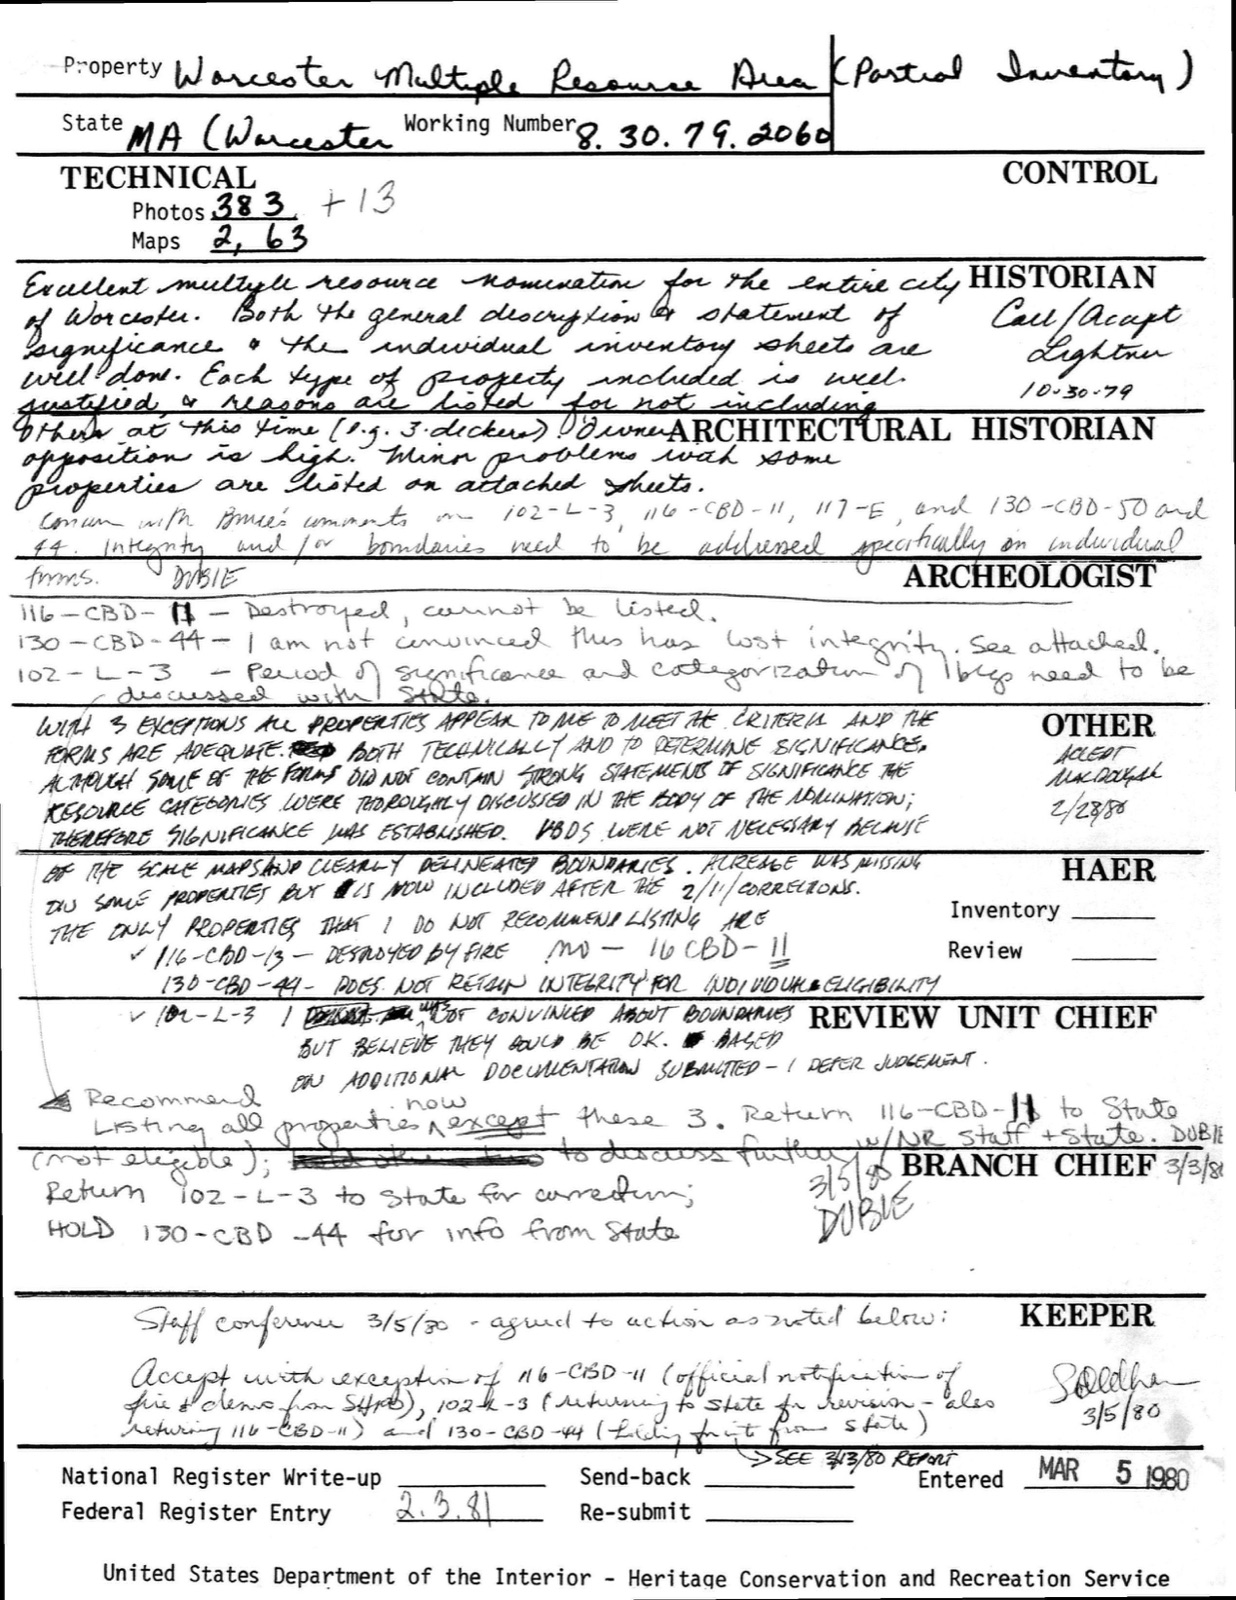 Property Worcester Multiple Resource Area (Partial Inventory)
State MA (Worcester Working Number 8.30.79.2060
TECHNICAL CONTROL
Photos 383 + 13
Maps 2, 63
Excellent multiple resource nomination for the entire city HISTORIAN
of Worcester. Both the general description & statement of Call/Accept
significance & the individual inventory sheets are Lightner
well done. Each type of property included is well 10-30-79
justified, & reasons are listed for not including
others at this time (e.g. 3-deckers). Owner ARCHITECTURAL HISTORIAN
opposition is high. Minor problems with some
properties are listed on attached sheets.
Concur with Bruce's comments on 102-L-3, 116-CBD-11, 117-E, and 130-CBD-50 and
44. Integrity and/or boundaries need to be addressed specifically on individual
forms. DUBIE ARCHEOLOGIST
116-CBD-11 - Destroyed, cannot be listed.
130-CBD-44 - I am not convinced this has lost integrity. See attached.
102-L-3 - Period of significance and categorization of bldgs need to be
discussed with State.
WITH 3 EXCEPTIONS ALL PROPERTIES APPEAR TO ME TO MEET THE CRITERIA AND THE OTHER
FORMS ARE ADEQUATE BOTH TECHNICALLY AND TO DETERMINE SIGNIFICANCE. ACCEPT
ALTHOUGH SOME OF THE FORMS DID NOT CONTAIN STRONG STATEMENTS OF SIGNIFICANCE THE MACDOUGAL
RESOURCE CATEGORIES WERE THOROUGHLY DISCUSSED IN THE BODY OF THE NOMINATION; 2/28/80
THEREFORE SIGNIFICANCE WAS ESTABLISHED. VBDS WERE NOT NECESSARY BECAUSE
OF THE SCALE MAPS AND CLEARLY DELINEATED BOUNDARIES. ACREAGE WAS MISSING HAER
ON SOME PROPERTIES BUT IS NOW INCLUDED AFTER THE 2/11/CORRECTIONS.
THE ONLY PROPERTIES THAT I DO NOT RECOMMEND LISTING ARE Inventory
✓ 116-CBD-13 - DESTROYED BY FIRE NO - 116 CBD-11 Review
130-CBD-44 - DOES NOT RETAIN INTEGRITY FOR INDIVIDUAL ELIGIBILITY
✓ 102-L-3 I WAS NOT CONVINCED ABOUT BOUNDARIES REVIEW UNIT CHIEF
BUT BELIEVE THEY COULD BE OK. BASED
ON ADDITIONAL DOCUMENTATION SUBMITTED - I DEFER JUDGEMENT.
Recommend
Listing all properties now except these 3. Return 116-CBD-11 to State
(not eligible); to discuss further w/NR staff + State. DUBIE
Return 102-L-3 to State for correction; 3/5/80 DUBIE BRANCH CHIEF 3/3/80
HOLD 130-CBD-44 for info from State
Staff conference 3/5/80 - agreed to action as noted below: KEEPER
Accept with exception of 116-CBD-11 (official notification of
fire & demo from SHPO), 102-L-3 (returning to State for revision - also 3/5/80
returning 116-CBD-11) and 130-CBD-44 (from State)
→ SEE 3/13/80 REPORT
National Register Write-up Send-back Entered MAR 5 1980
Federal Register Entry 2.3.81 Re-submit
United States Department of the Interior - Heritage Conservation and Recreation Service